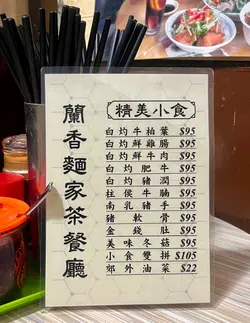 蘭香麵家茶餐廳
精美小食
白灼牛柏葉 $95
白灼鮮雞腸 $95
白灼鮮牛肉 $95
白灼肥牛 $95
白灼豬潤 $95
柱侯牛腩 $95
南乳豬手 $95
豬軟骨 $95
金錢肚 $95
美味冬菇 $95
小食雙拼 $105
郊外油菜 $22